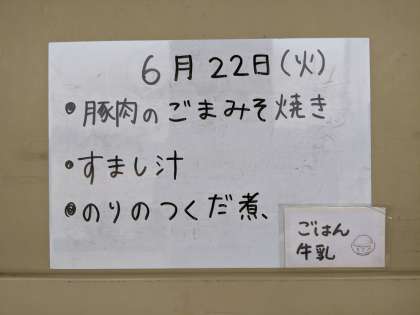 6月22日(火)
•豚肉のごまみそ焼き
•すまし汁
•のりのつくだ煮、
ごはん
牛乳